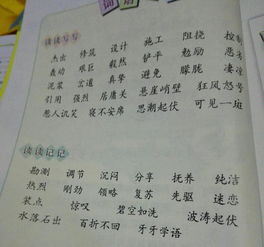 词语
读读写写
杰出 修筑 设计 施工 阻挠 控制
轰动 艰巨 毅然 铲平 勉励
泥浆 岔道 真挚 避免 朦胧 凄凉
引用 强烈 居庸关 悬崖峭壁 狂风怒号
惹人讥笑 寝不安席 思潮起伏 可见一斑
读读记记
勘测 调节 沉闷 分享 抚养 纯洁
热烈 刚劲 领略 复苏 先驱 迷恋
装点 惊叹 碧空如洗 波涛起伏
水落石出 百折不回 牙牙学语